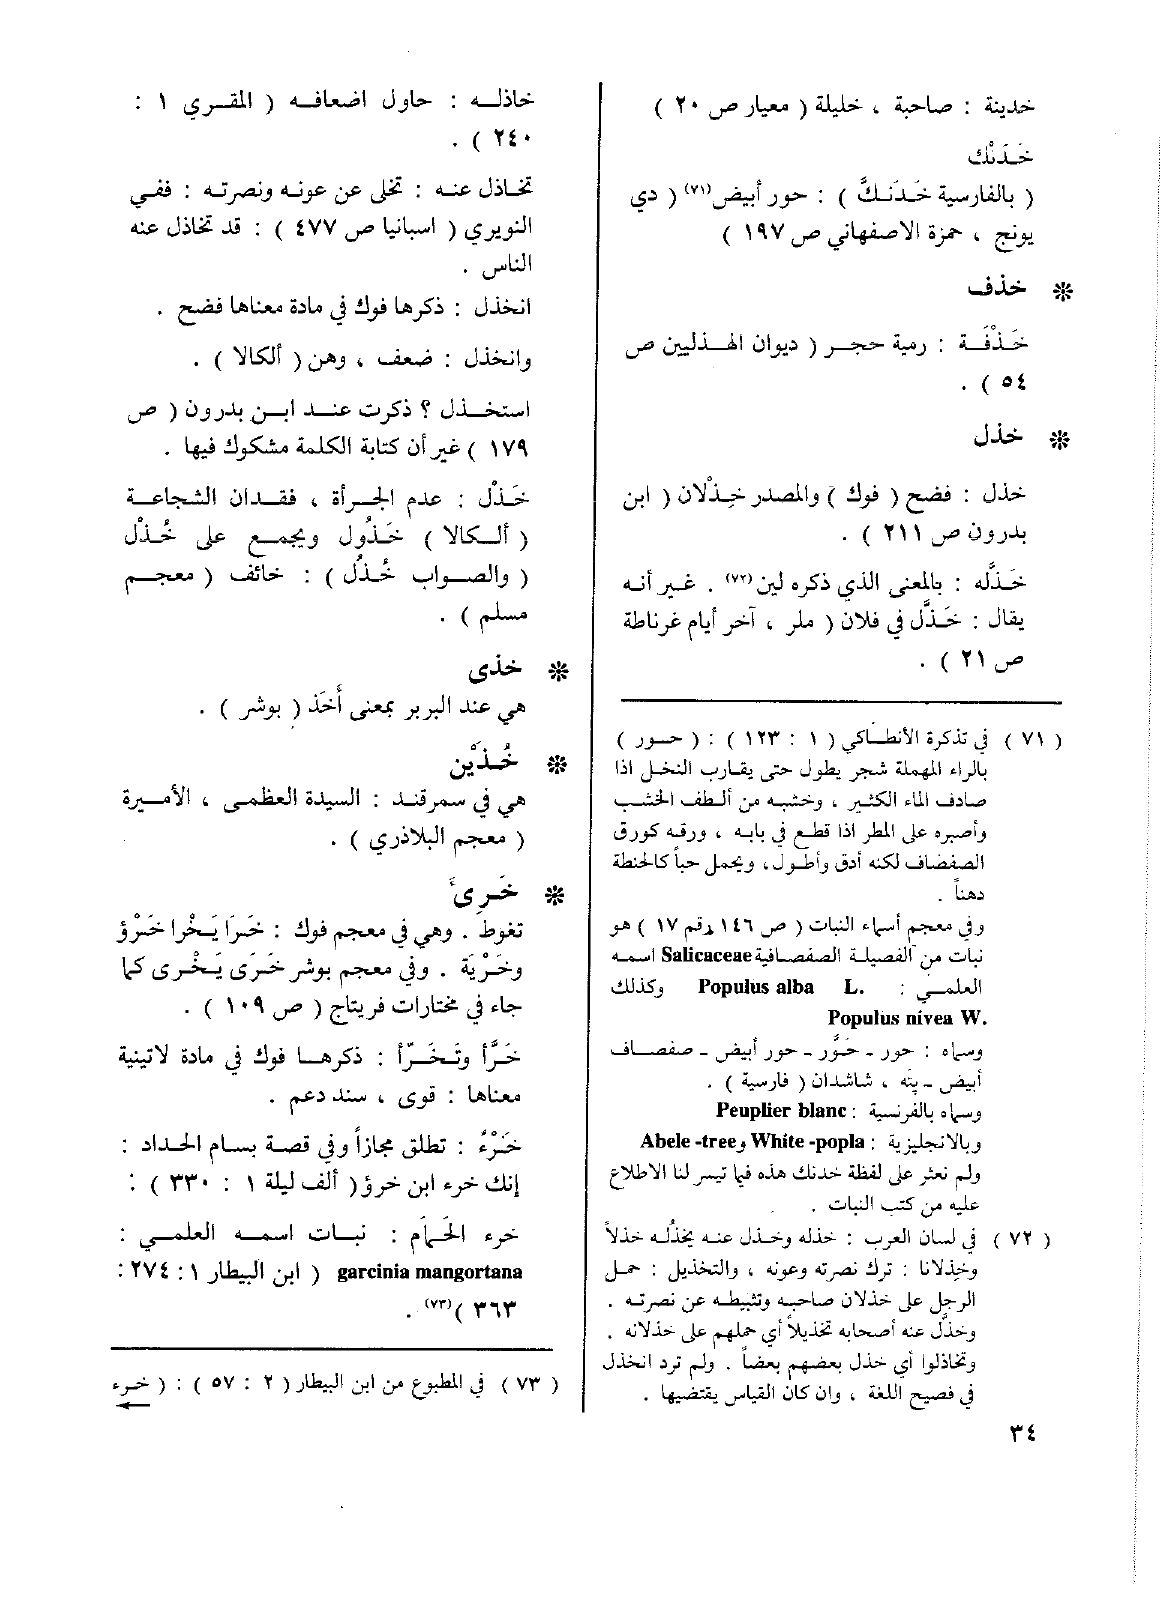 خدينة : صاحبة ، خليلة ( معيار ص ٢٠ )
خَدَنْك
( بالفارسية خَدَنكَّ ) : حور أبيض(٧١) ( دي
يونج ، حمزة الاصفهاني ص ١٩٧ )
❊ خذف
خَذْفَة : رمية حجر ( ديوان الهذليين ص
٥٤ ) .
❊ خذل
خذل : فضح ( فوك ) والمصدر خِذْلان ( ابن
بدرون ص ٢١١ ) .
خَذَّله : بالمعنى الذي ذكره لين(٧٢) . غير أنه
يقال : خَذَّل في فلان ( ملر ، آخر أيام غرناطة
ص ٢١ ) .
( ٧١ ) في تذكرة الأنطاكي ( ١ : ١٢٣ ) : ( حور )
بالراء المهملة شجر يطول حتى يقارب النخل اذا
صادف الماء الكثير ، وخشبه من ألطف الخشب
وأصبره على المطر اذا قطع في بابه ، ورقه كورق
الصفصاف لكنه أدق وأطول، ويحمل حباً كالحنطة
دهناً .
وفي معجم أسماء النبات ( ص ١٤٦ رقم ١٧ ) هو
نبات من الفصيلة الصفصافية Salicaceae اسمه
العلمي : Populus alba L. وكذلك
Populus nivea W.
وسماه : حور - حَوَّر - حور أبيض - صفصاف
أبيض - پته ، شاشدان ( فارسية ) .
وسماه بالفرنسية : Peuplier blanc
وبالانجليزية : White -popla و Abele -tree
ولم نعثر على لفظة خدنك هذه فيما تيسر لنا الاطلاع
عليه من كتب النبات .
( ٧٢ ) في لسان العرب : خذله وخذل عنه يخذُله خذلاً
وخِذلانا : ترك نصرته وعونه ، والتخذيل : حمل
الرجل على خذلان صاحبه وتثبيطه عن نصرته .
وخذَّل عنه أصحابه تخذيلاً أي حملهم على خذلانه .
وتخاذلوا أي خذل بعضهم بعضاً . ولم ترد انخذل
في فصيح اللغة ، وان كان القياس يقتضيها .
خاذله : حاول اضعافه ( المقري ١ :
٢٤٠ ) .
تخاذل عنه : تخلى عن عونه ونصرته : ففي
النويري ( اسبانيا ص ٤٧٧ ) : قد تخاذل عنه
الناس .
انخذل : ذكرها فوك في مادة معناها فضح .
وانخذل : ضعف ، وهن ( ألكالا ) .
استخذل ؟ ذكرت عند ابن بدرون ( ص
١٧٩ ) غير أن كتابة الكلمة مشكوك فيها .
خَذْل : عدم الجرأة ، فقدان الشجاعة
( ألكالا ) خَذُول ويجمع على خُذْل
( والصواب خُذُل ) : خائف ( معجم
مسلم ) .
❊ خذى
هي عند البربر بمعنى أَخَذ ( بوشر ) .
❊ خُذَيْن
هي في سمرقند : السيدة العظمى ، الأميرة
( معجم البلاذري ) .
❊ خَرِئَ
تغوط . وهي في معجم فوك : خَرَا يَخْرا خَرْؤ
وخَرْيَة . وفي معجم بوشر خَرَى يَخْرى كما
جاء في مختارات فريتاج ( ص ١٠٩ ) .
خَرَّأ وتَخَرَّأ : ذكرها فوك في مادة لاتينية
معناها : قوى ، سند دعم .
خَرْءُ : تطلق مجازاً وفي قصة بسام الحداد :
إنك خرء ابن خرؤ ( ألف ليلة ١ : ٣٣٠ ) :
خرء الحَمام : نبات اسمه العلمي :
garcinia mangortana ( ابن البيطار ١ : ٢٧٤ :
٣٦٣ )(٧٣) .
( ٧٣ ) في المطبوع من ابن البيطار ( ٢ : ٥٧ ) : ( خرء
٣٤